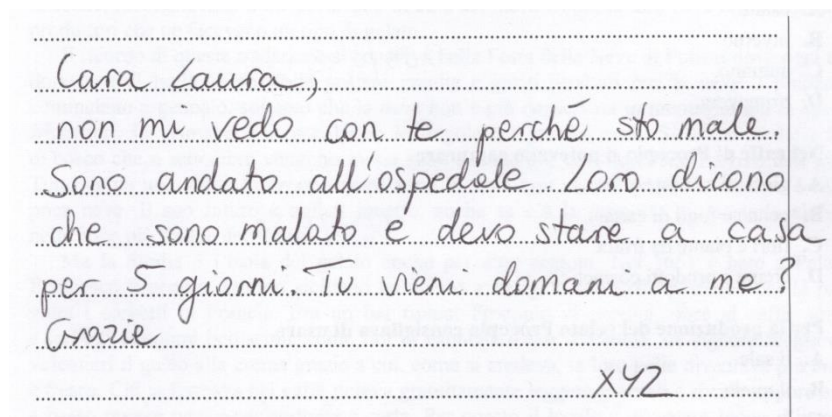 Cara Laura,
non mi vedo con te perché sto male.
Sono andato all'ospedale. Loro dicono
che sono malato e devo stare a casa
per 5 giorni. Tu vieni domani a me?
Grazie
XYZ